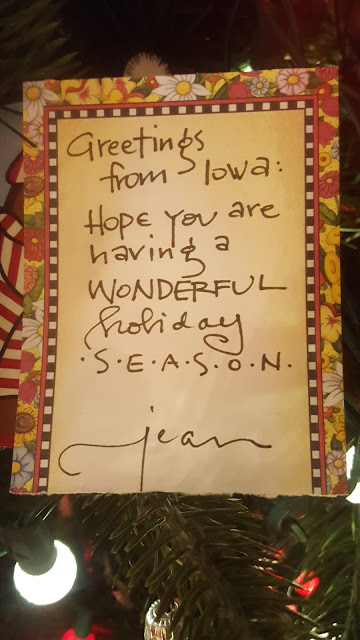 Greetings
from Iowa:
HOPE you are
having a
WONDERFUL
holiday
·S·E·A·S·O·N·
jean